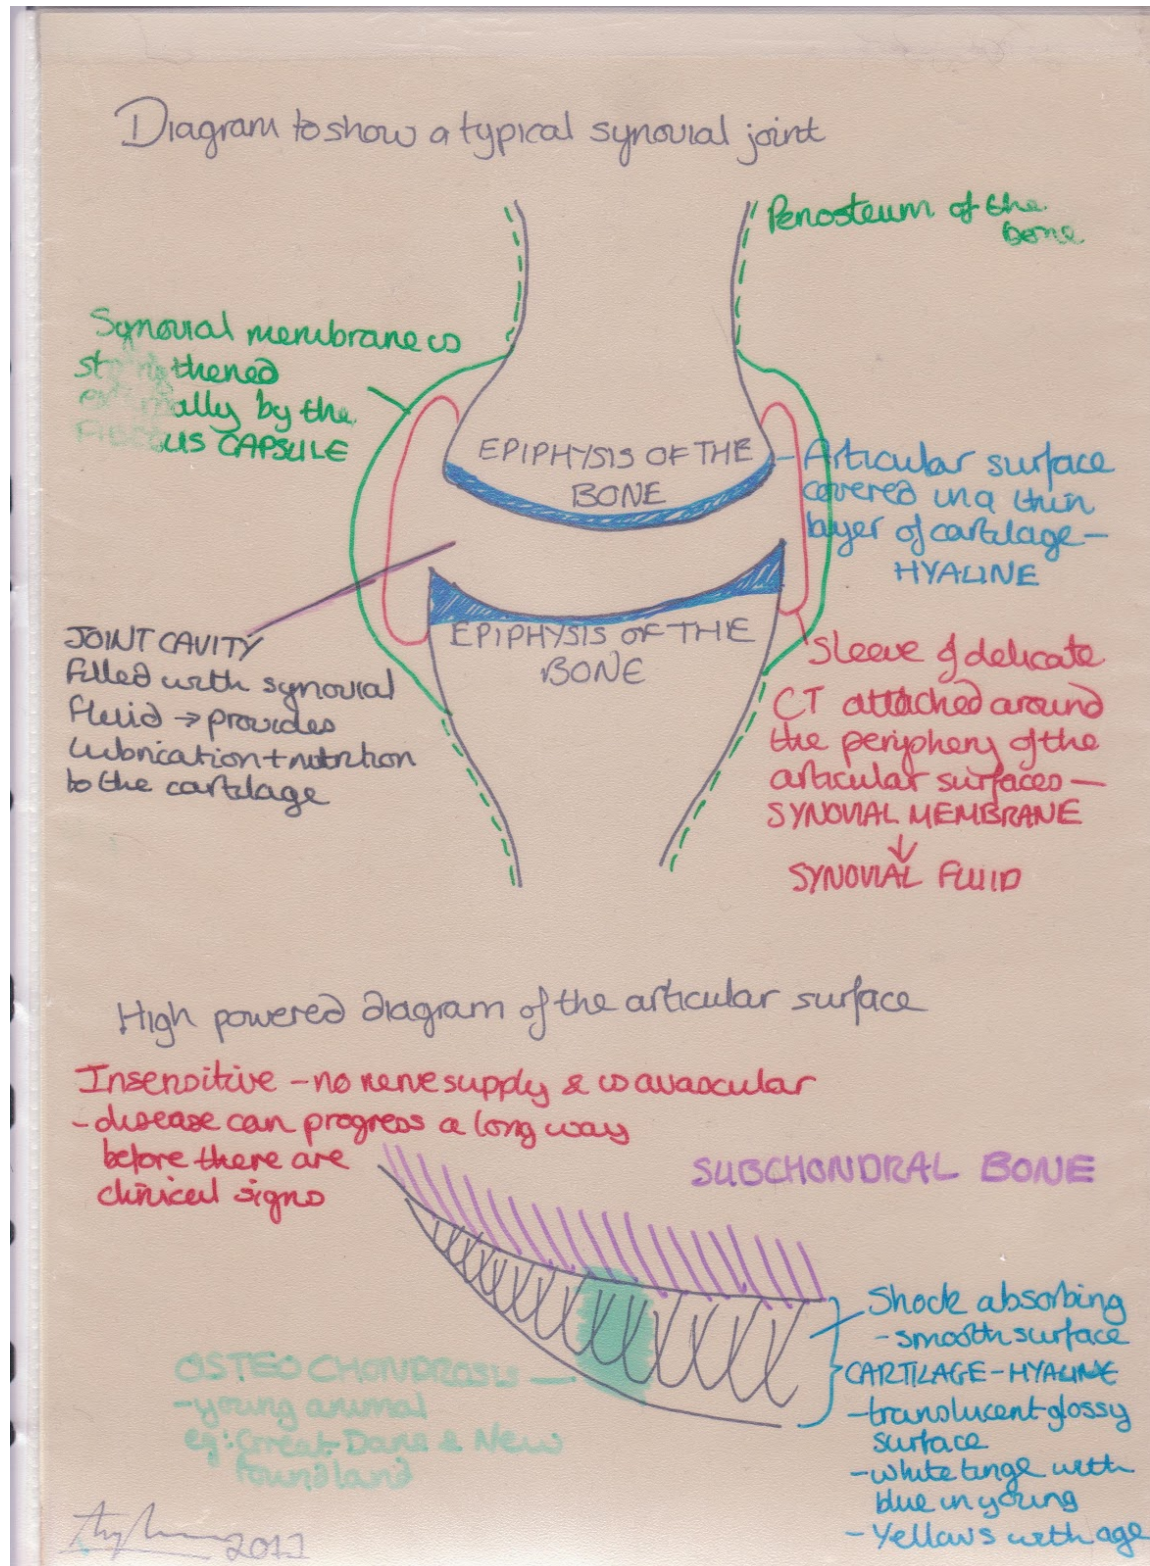 Diagram to show a typical synovial joint
Periosteum of the
bone
Synovial membrane is
strengthened
externally by the
FIBROUS CAPSULE
EPIPHYSIS OF THE
BONE
Articular surface
covered in a thin
layer of cartilage –
HYALINE
JOINT CAVITY
filled with synovial
fluid → provides
lubrication + nutrition
to the cartilage
EPIPHYSIS OF THE
BONE
Sleeve of delicate
CT attached around
the periphery of the
articular surfaces –
SYNOVIAL MEMBRANE
↓
SYNOVIAL FLUID
High powered diagram of the articular surface
Insensitive – no nerve supply & is avascular
- disease can progress a long way
before there are
clinical signs
SUBCHONDRAL BONE
Shock absorbing
- smooth surface
CARTILAGE - HYALINE
- translucent glossy
surface
- white tinge with
blue in young
- Yellows with age
OSTEOCHONDROSIS
- young animal
eg: Great Dane & New
foundland